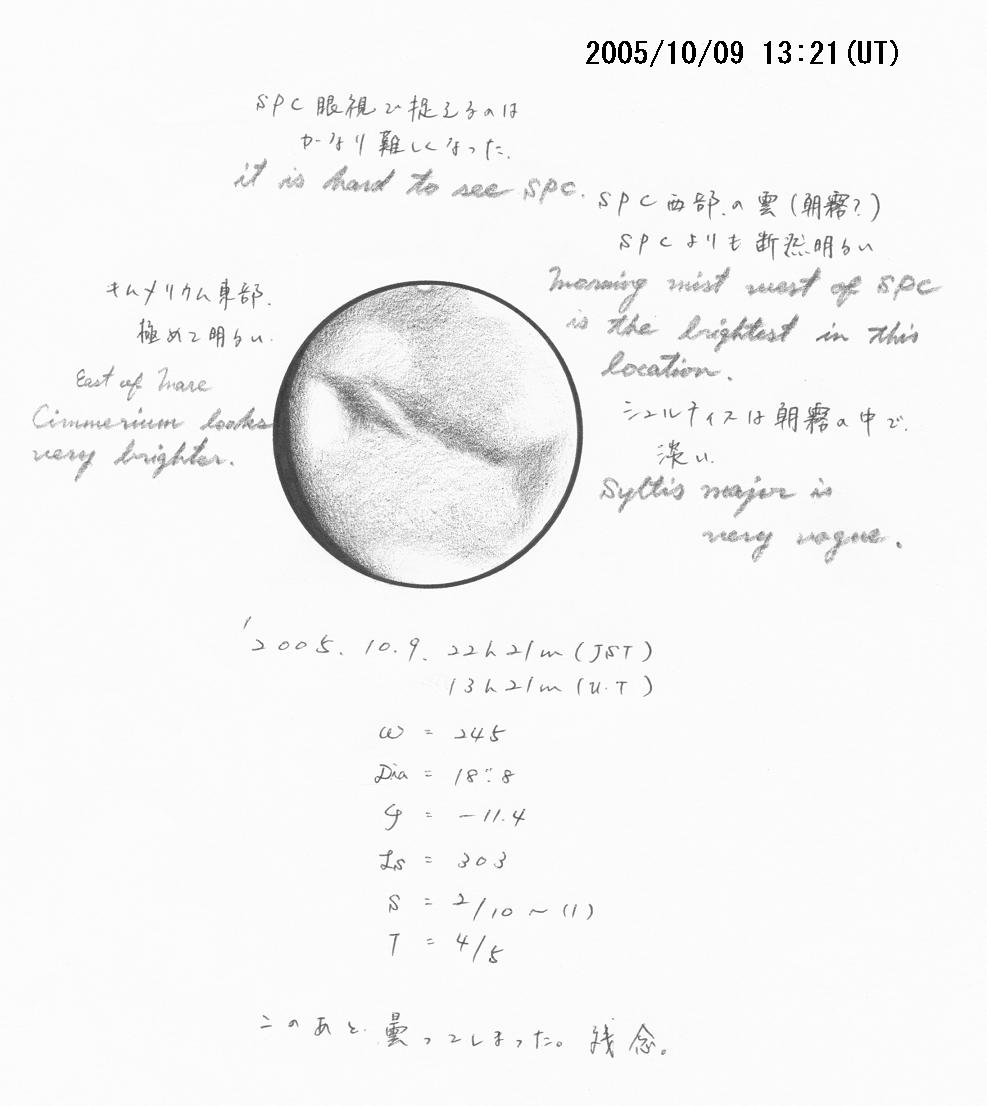 2005/10/09 13:21(UT)
SPC 眼視で捉えるのは
かなり難しくなった.
it is hard to see SPC.
SPC 西部.の雲(朝霧?)
SPCよりも断然明るい
Morning mist west of SPC
is the brightest in this
location.
キムメリウム東部.
極めて明るい.
East of Mare
Cimmerium looks
very brighter.
シュルティスは朝霧の中で.
淡い.
Syltis major is
very vogue.
'2005. 10. 9. 22h21m (JST)
13h21m (U.T)
ω = 245
Dia = 18".8
φ = -11.4
Ls = 303
S = 2/10 ~ (1)
T = 4/5
このあと.曇ってしまった。残念。